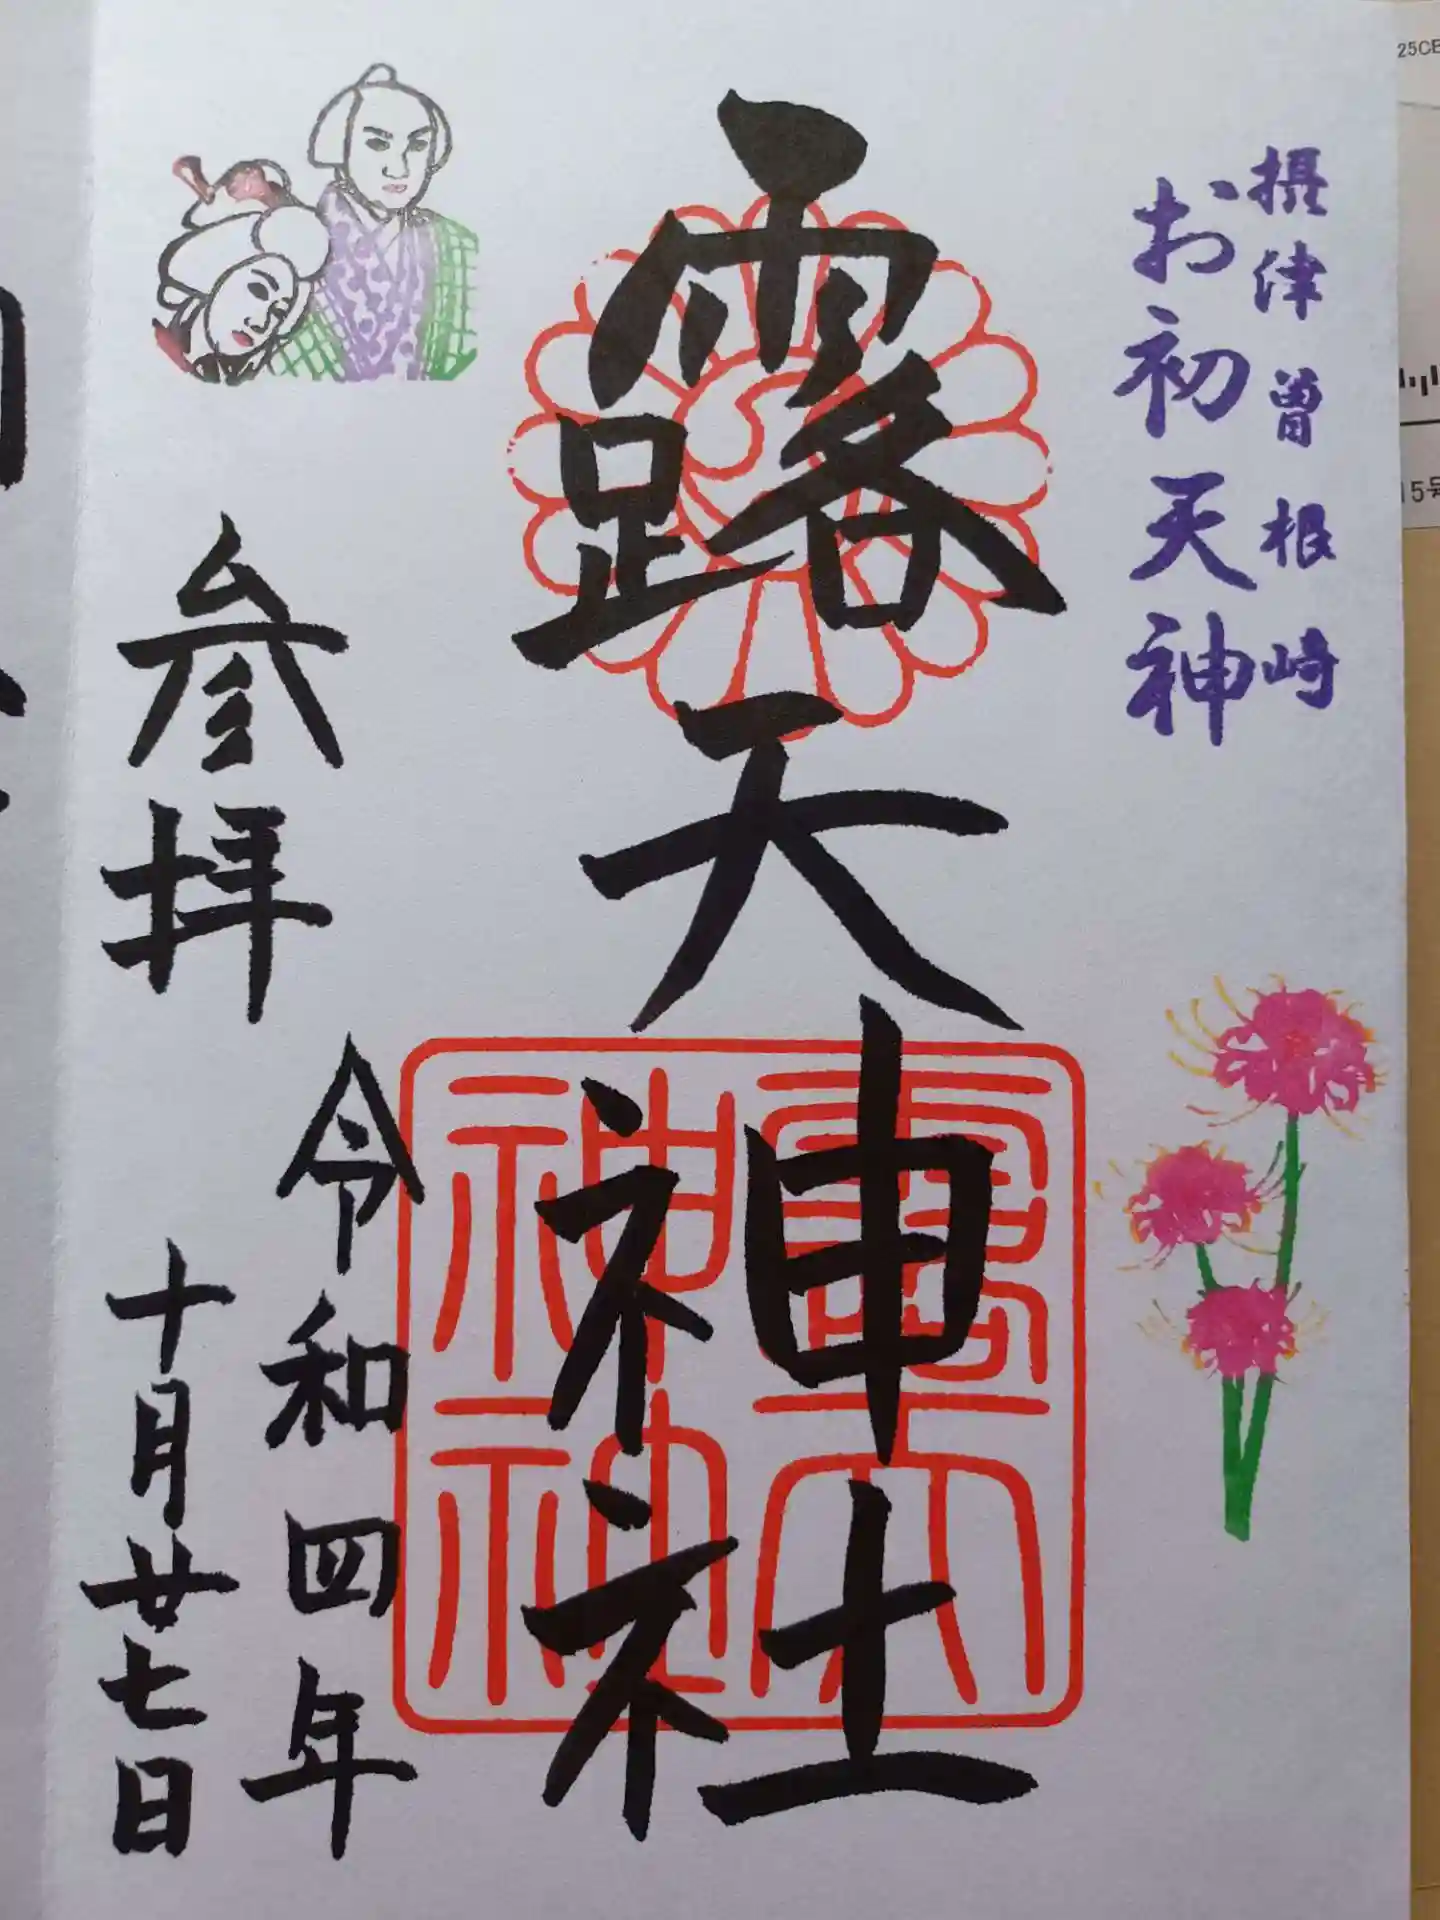 摂津曽根崎
お初天神
露天神社
参拝
令和四年
十月廿七日
25CE
15号